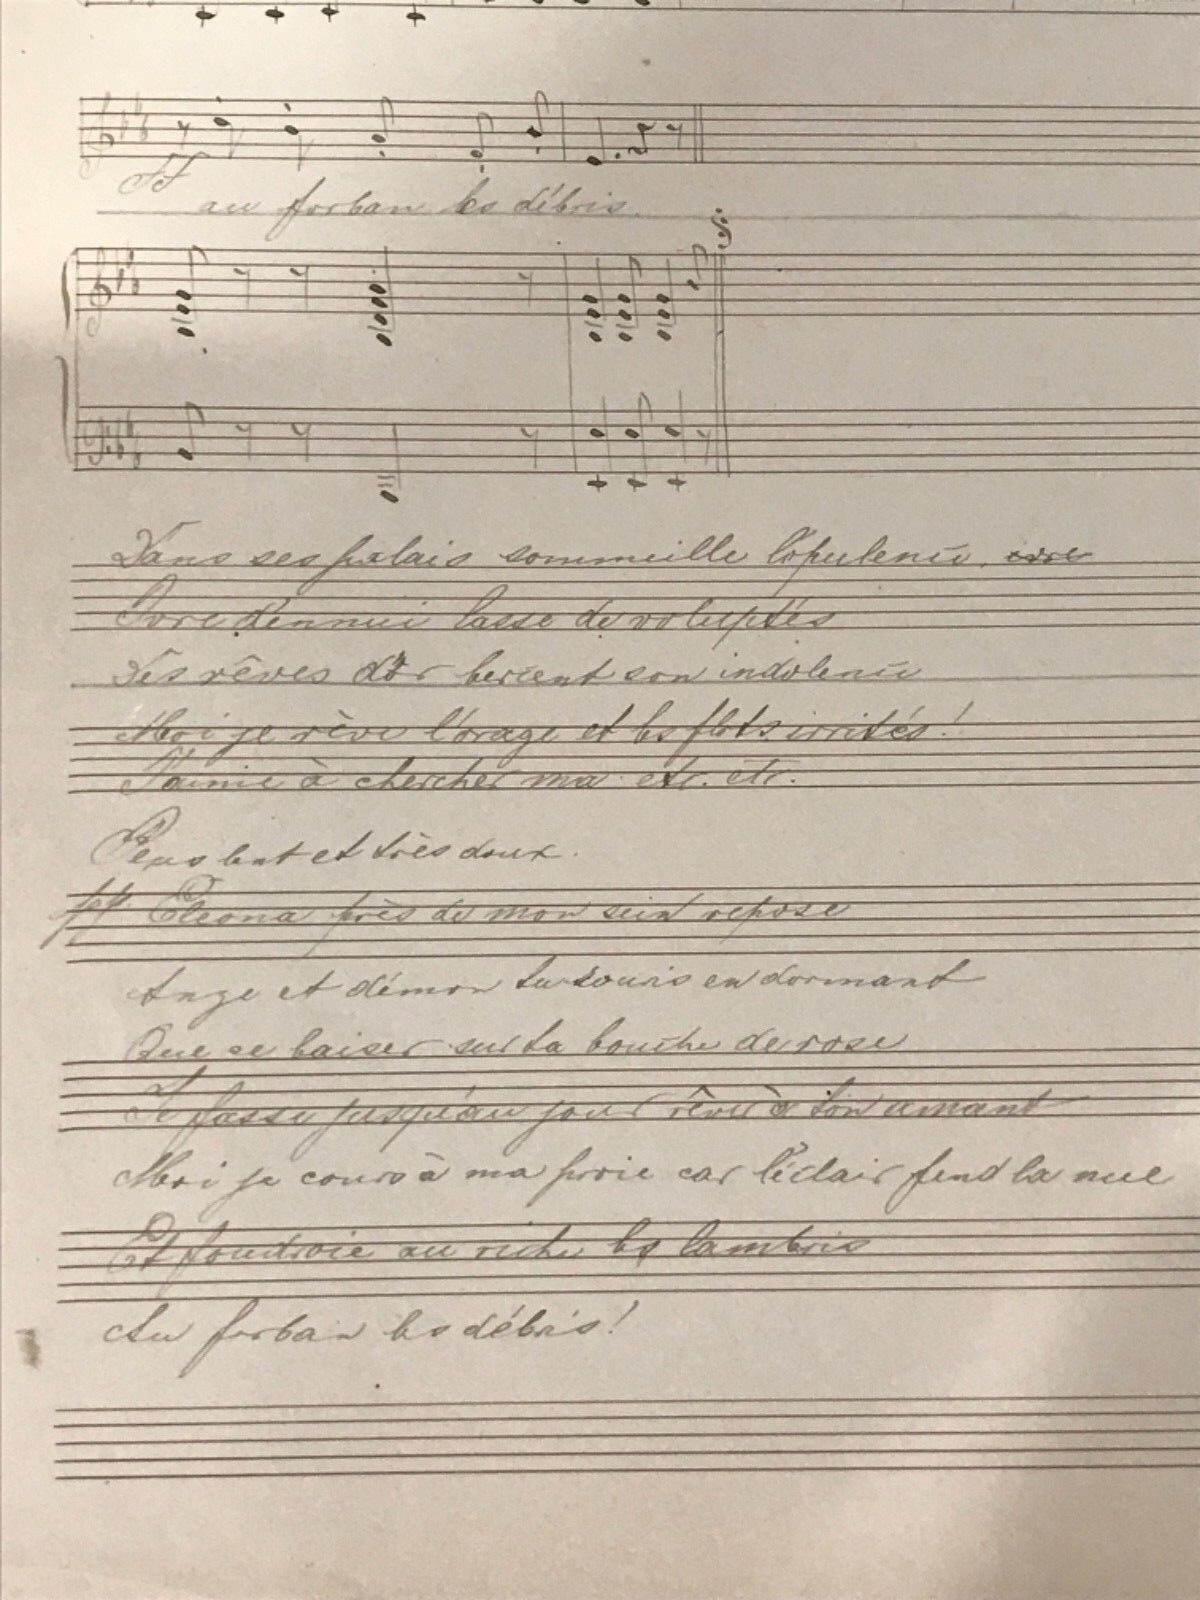 ff
au forban les débris.
Dans ses palais sommeille l'opulence, ivre
Ivre d'ennui lasse de voluptés
Des rêves d'or bercent son indolence
Moi je rêve l'orage et les flots irrités!
J'aime à chercher ma etc. etc.
Plus lent et très doux.
pp Eleona près de mon sein repose
Ange et démon tu souris en dormant
Que ce baiser sur ta bouche de rose
Te fasse jusqu'au jour rêver à ton amant
Moi je cours à ma proie car l'éclair fend la nue
Et foudroie au riche les lambris
Au forban les débris!